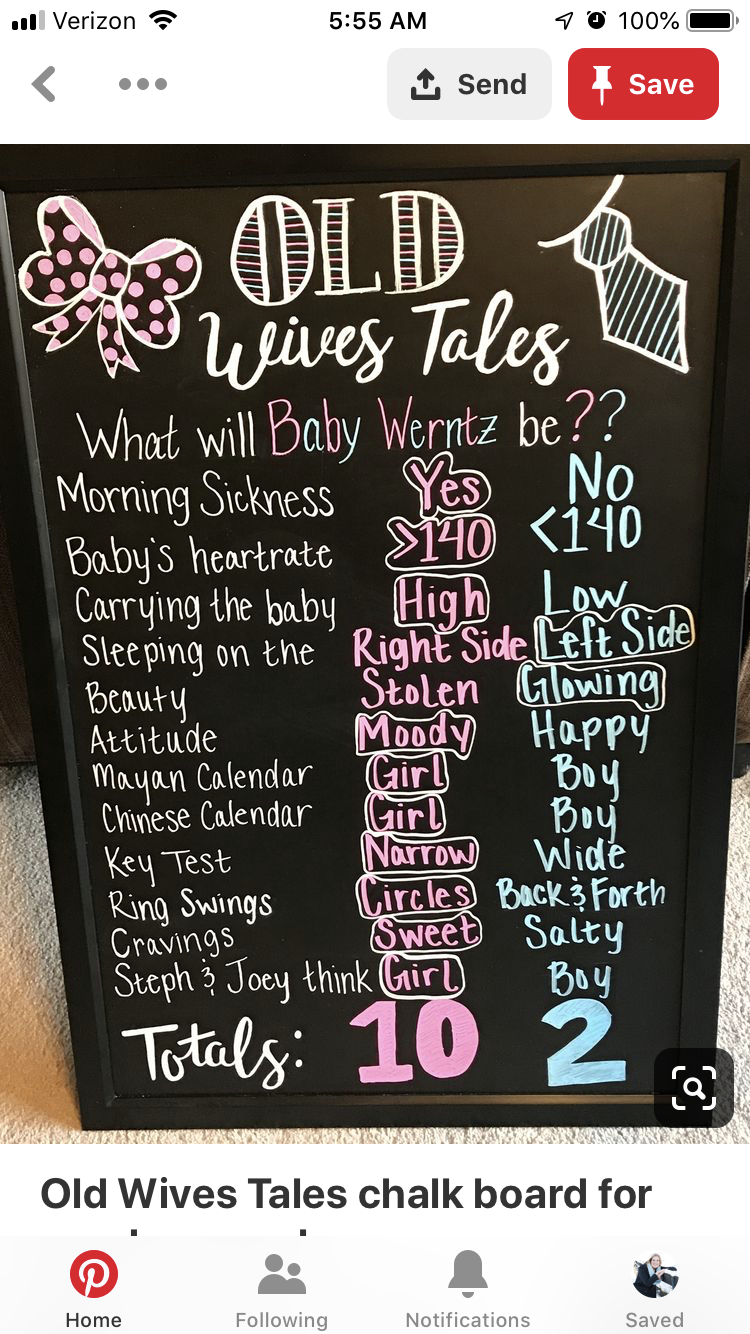 Verizon 5:55 AM 100%
Send Save
OLD
Wives Tales
What will Baby Werntz be??
Morning Sickness Yes No
Baby's heartrate >140 <140
Carrying the baby High Low
Sleeping on the Right Side Left Side
Beauty Stolen Glowing
Attitude Moody Happy
Mayan Calendar Girl Boy
Chinese Calendar Girl Boy
Key Test Narrow Wide
Ring Swings Circles Back & Forth
Cravings Sweet Salty
Steph & Joey think Girl Boy
Totals: 10 2
Old Wives Tales chalk board for
Home Following Notifications Saved